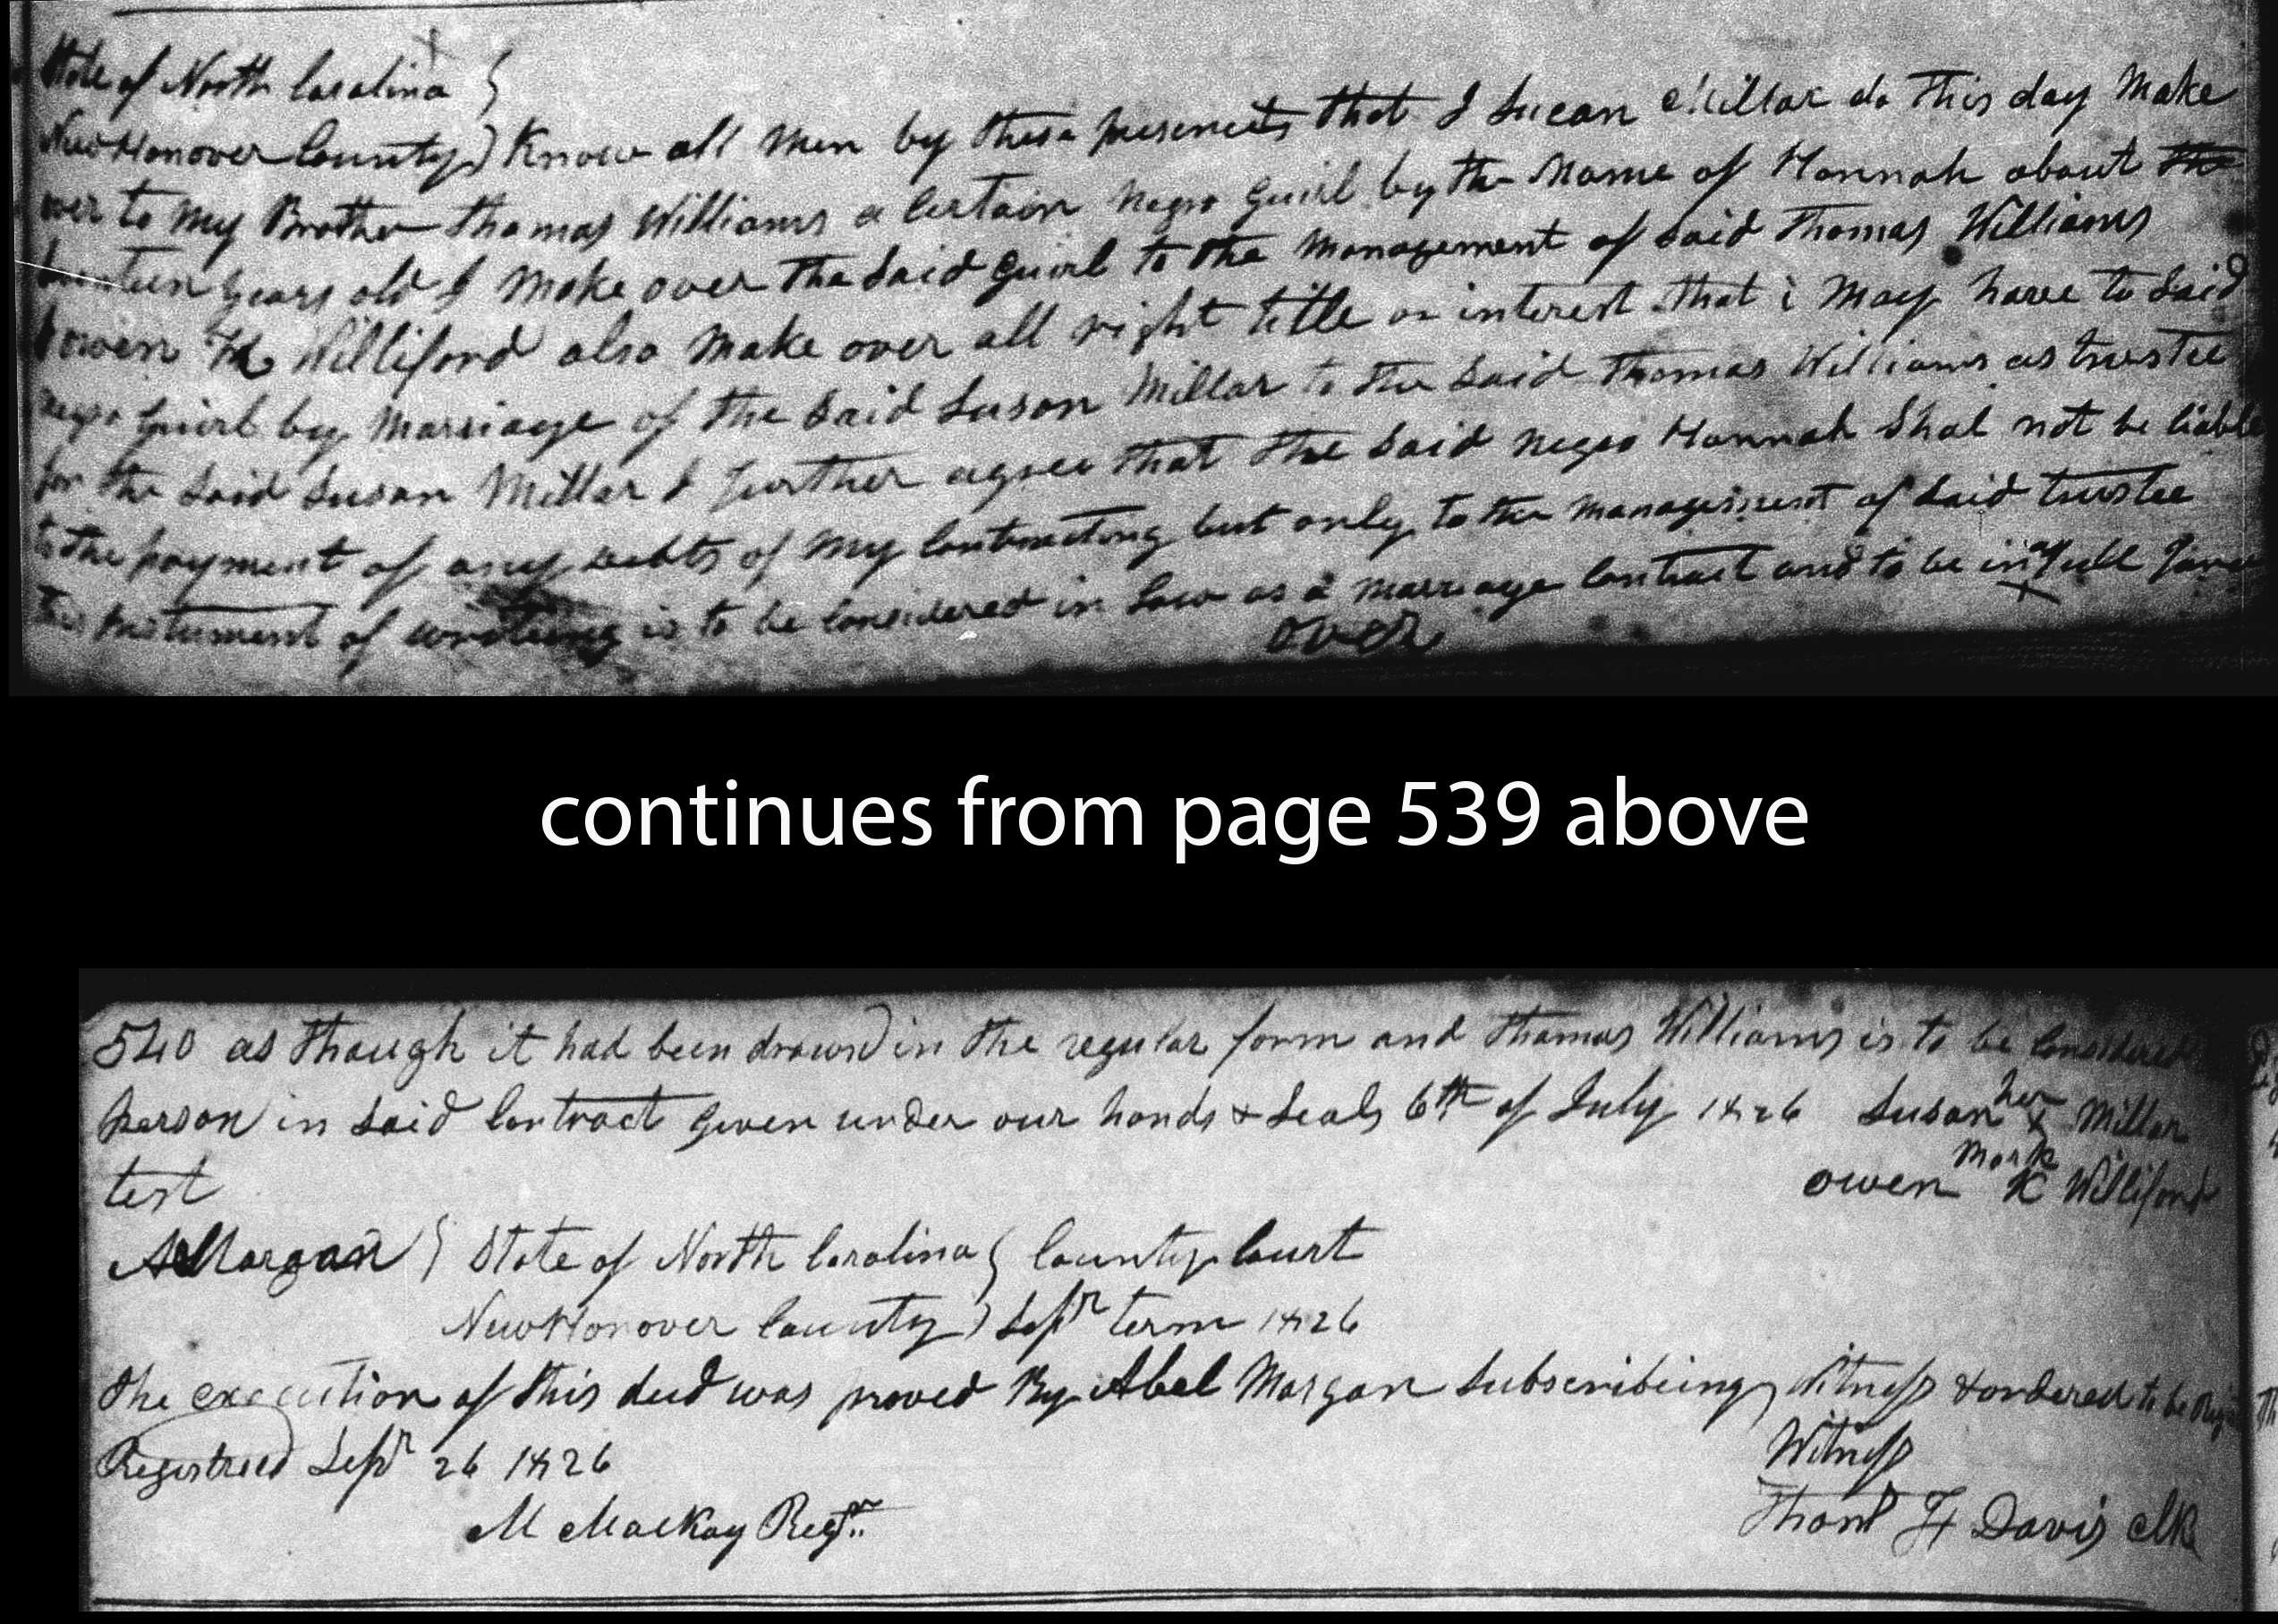 State of North Carolina
New Hanover County Know all Men by these presenets that I Sucan Millar do this day Make
over to My Brother Thomas Williams a Certain Negro Guirl by the Name of Hannah about
years old I Make over the Said Guirl to the Management of Said Thomas Williams
owen K Williford also Make over all right title or interest that i May have to Said
negro guirl by Marriage of the Said Susan Millar to the Said Thomas Williams as trustee
for the Said Susan Millar I further agree that the Said Negro Hannah Shal not be liable
to the payment of any debts of My Contracting but only to the Management of Said trustee
This instument of writeing is to be Considered in Law as a Marriage Contract and to be in as full force
over
continues from page 539 above
540 as though it had been drawn in the regular form and Thomas Williams is to be Considered
person in Said Contract Given under our hands & Seals 6th of July 1826 Susan her x Millar
mark
test owen K Williford
A Morgan State of North Carolina County Court
New Hanover County Sepr term 1826
The execution of this deed was proved By Abel Morgan Subscribeing Witness & ordered to be
Registreed Sepr 26 1826 Witness
M MacKay Regr Thom F Davis Clk